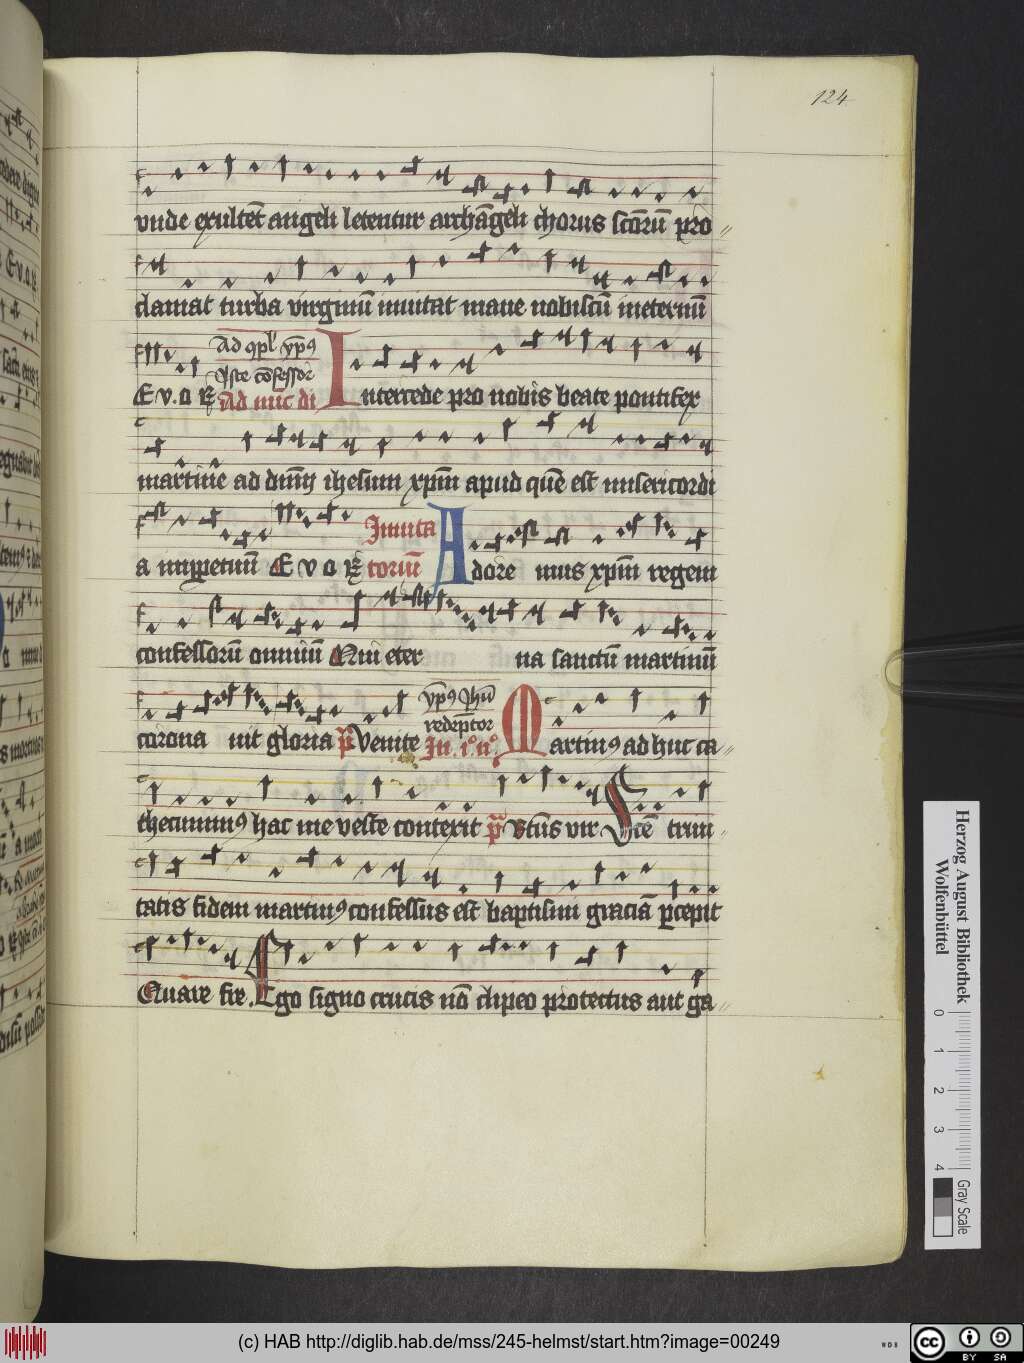 124
vnde exultēt angeli letentur archāgeli chorus scōrū pro
clamat turba virginū inuitat mane nobiscū ineternū
Ad 9pl' yp9
Iste cōfessor
E v.o Ad nūc di Intercede pro nobis beate pontifex
martine ad dnm̄ ihesum xpm̄ apud quē est misericordi
a inppetuū E v o Inuita
toriū Adore mus xpm̄ regem
confessorū omniū Qui eter na sanctū martinū
yp9 Jhū
redēptor
corona uit gloria p̄ Venite In .i9 n9 Martin9 ad huc ca
thecumin9 hac me veste contexit p̄ Bt̄us vir Scē trini
tatis fidem martin9 confessus est baptismi graciā percepit
Quare fre. Ego signo crucis nō clipeo protectus aut ga
Herzog August Bibliothek
Wolfenbüttel
0 1 2 3 4
Gray Scale
(c) HAB http://diglib.hab.de/mss/245-helmst/start.htm?image=00249
WDB
cc BY SA